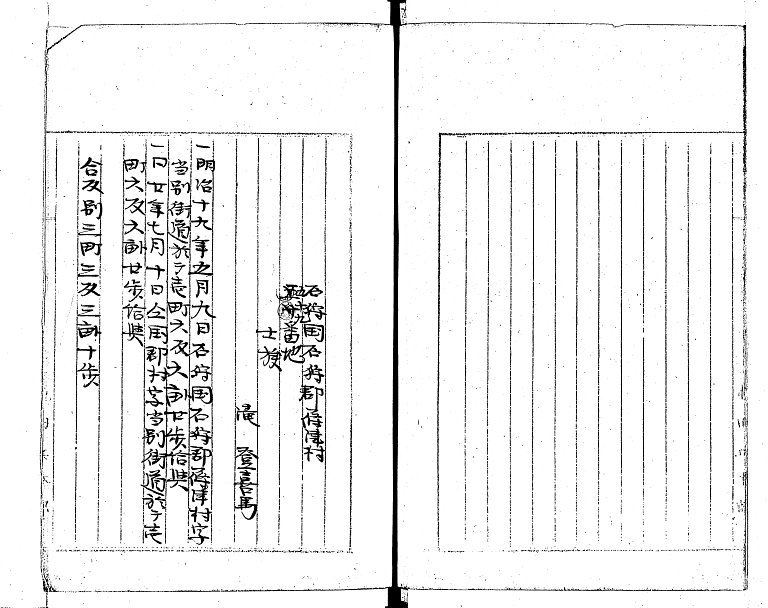 石狩国石狩郡篠津村
番地
士族
滝 登喜馬
一明治十九年五月九日石狩国石狩郡篠津村字
当別街道於テ壱町六反六畝廿歩給与
一同廿年七月十日仝国郡村字当別街道於テ壱
町六反六畝廿歩給与
合反別三町三反三畝十歩